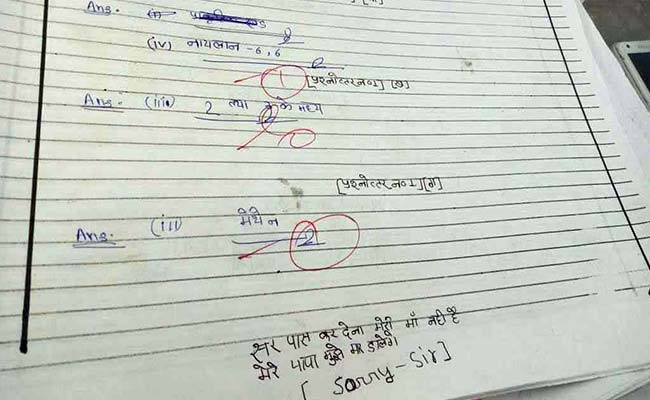 Ans. (i)
(iv) नायलान - 6,6
1 [प्रश्नोत्तर न० 1] (ख)
Ans:- (iii) 2 तथा के मध्य
[प्रश्नोत्तर न० 1] [ग]
Ans. (iii) मेथेन
2
सर पास कर देना मेरी माँ नही है
मेरे पापा मुझे मार डालेंगे
[ Sorry - Sir ]